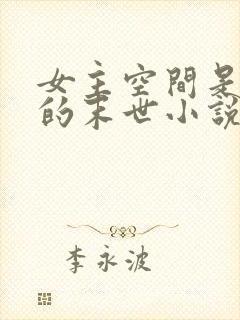 女主空間是
的末世小說
李永波